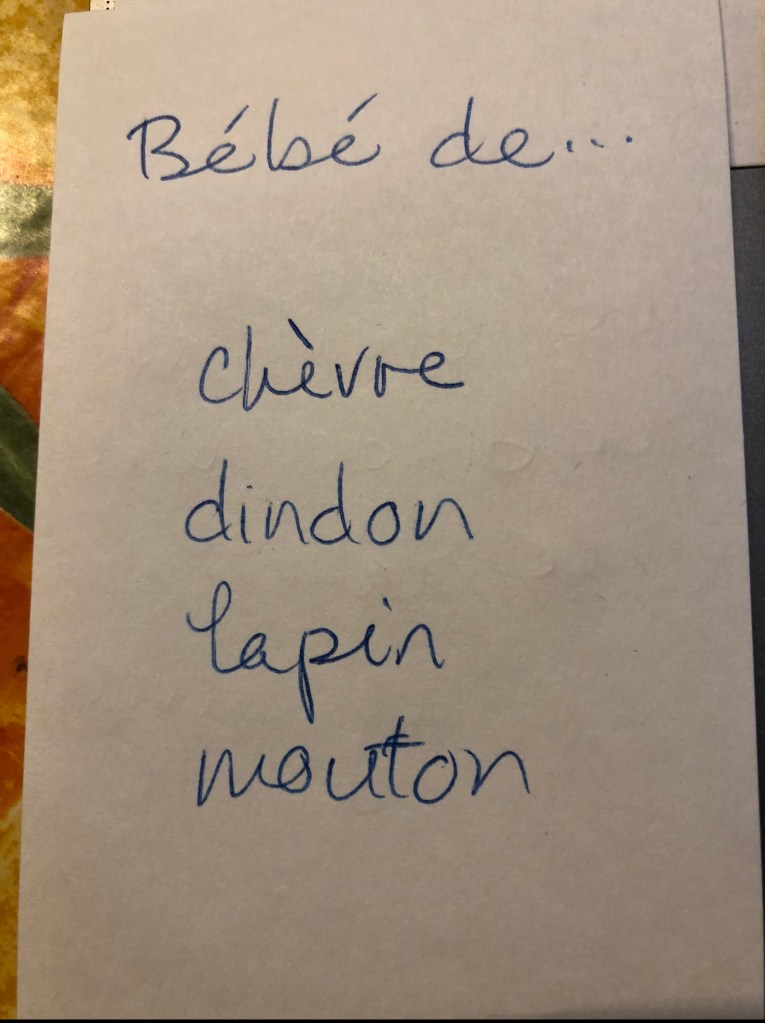 Bébé de...
chèvre
dindon
lapin
mouton